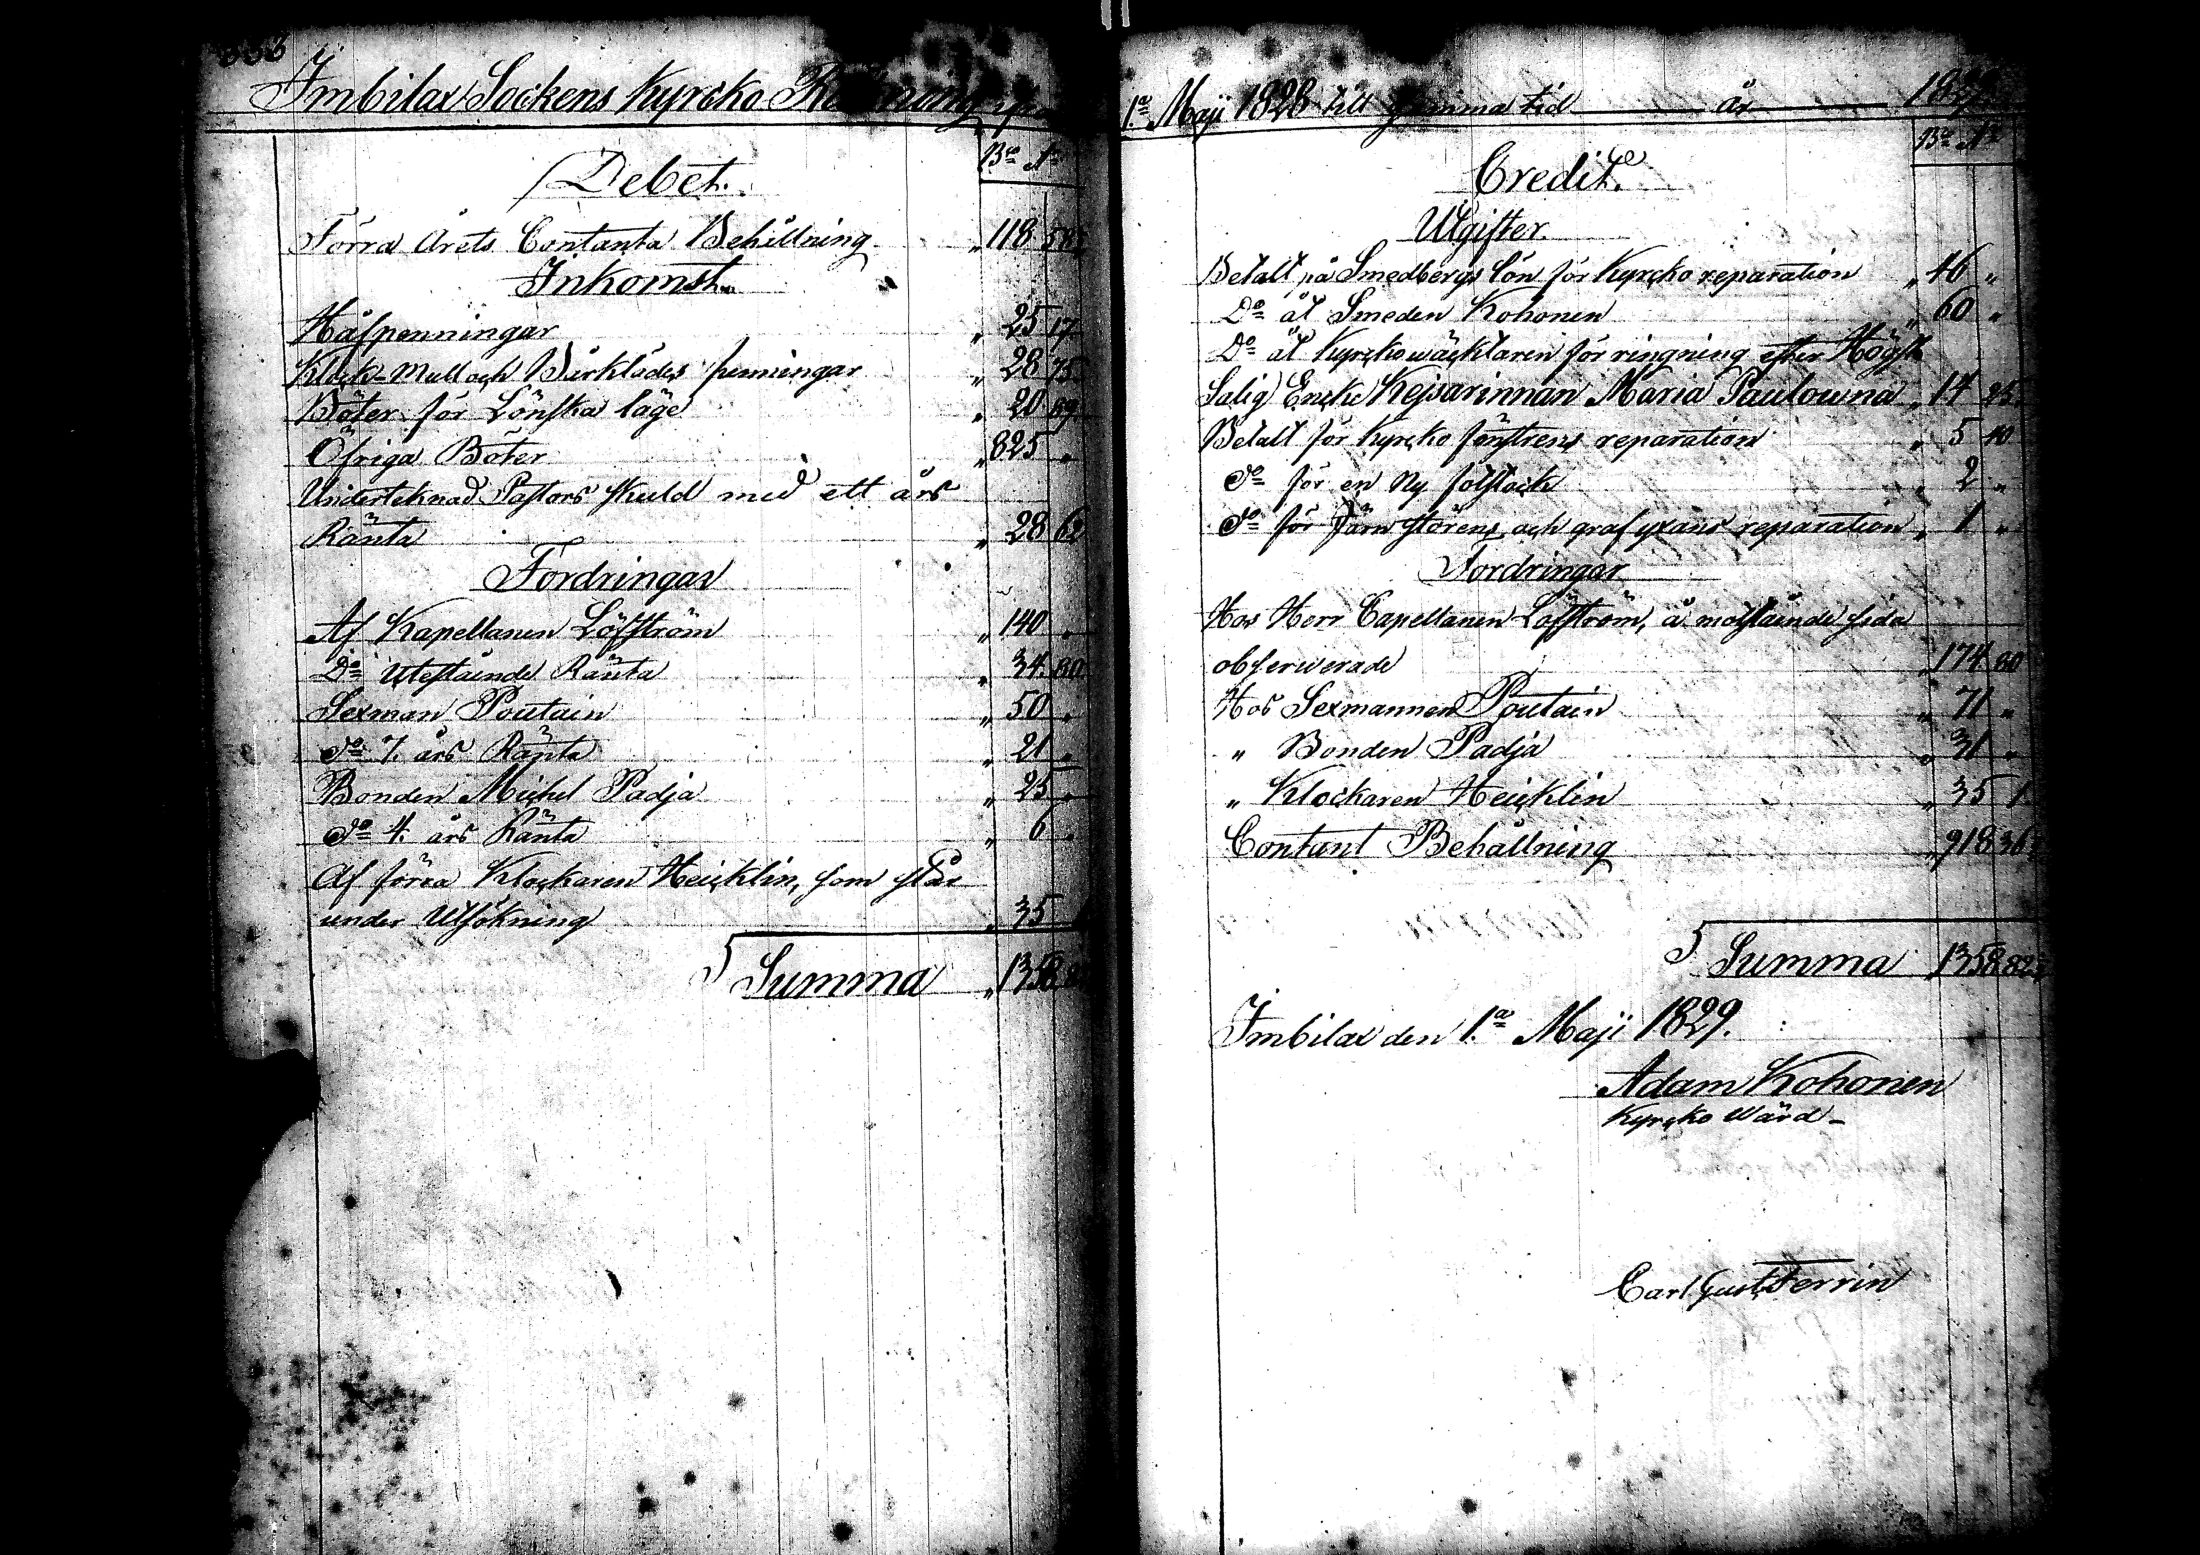 Imbilax Sockens Kyrcko
Bco Ko
Debet.
Förra Årets Contanta Behållning " 118
Inkomst.
Håfpenningar " 25 17
Klock-Mull och Bårklädes penningar " 28 75
Böter för Lönska läge " 20 69
Öfriga Böter " 825 "
Underteknad Pastors skuld med ett års
Ränta " 28 62
Fordringar
Af Kapellanen Löfström " 140 "
Do Utestående Ränta " 34. 80
Sexman Poutain " 50 "
Do 7. års Ränta " 21 "
Bonden Michel Padja " 25 "
Do 4. års Ränta " 6 "
Af förra Klockaren Heicklin, som står
under Utsökning " 35
Summa " 1358
1a Maji 1828 till samma tid år
Bco Ko
Credit.
Utgifter
Betalt på Smedbergs lön för Kyrcko reparation " 46 "
Do åt Smeden Kohonen " 60 "
Do åt Kyrckowäcktaren för ringning efter Högst
Salig Encke Kejsarinnan Maria Paulowna " 14 25
Betalt för Kyrcko fönstrens reparation " 5 40
Do för en Ny " 2 "
Do för Järn störens och graf yxans reparation " 1 "
Fordringar
Hos Herr Capellanen Löfström, å motstående sida
observerade " 174 80
Hos Sexmannen Poutain " 71 "
" Bonden Padja " 31 "
" Klockaren Heicklin " 35 1
Contant Behållning " 918 36
Summa 1358 82
Imbilax den 1.a Maji 1829.
Adam Kohonen
Kyrcko Wärd
Carl Gust. Ferrin